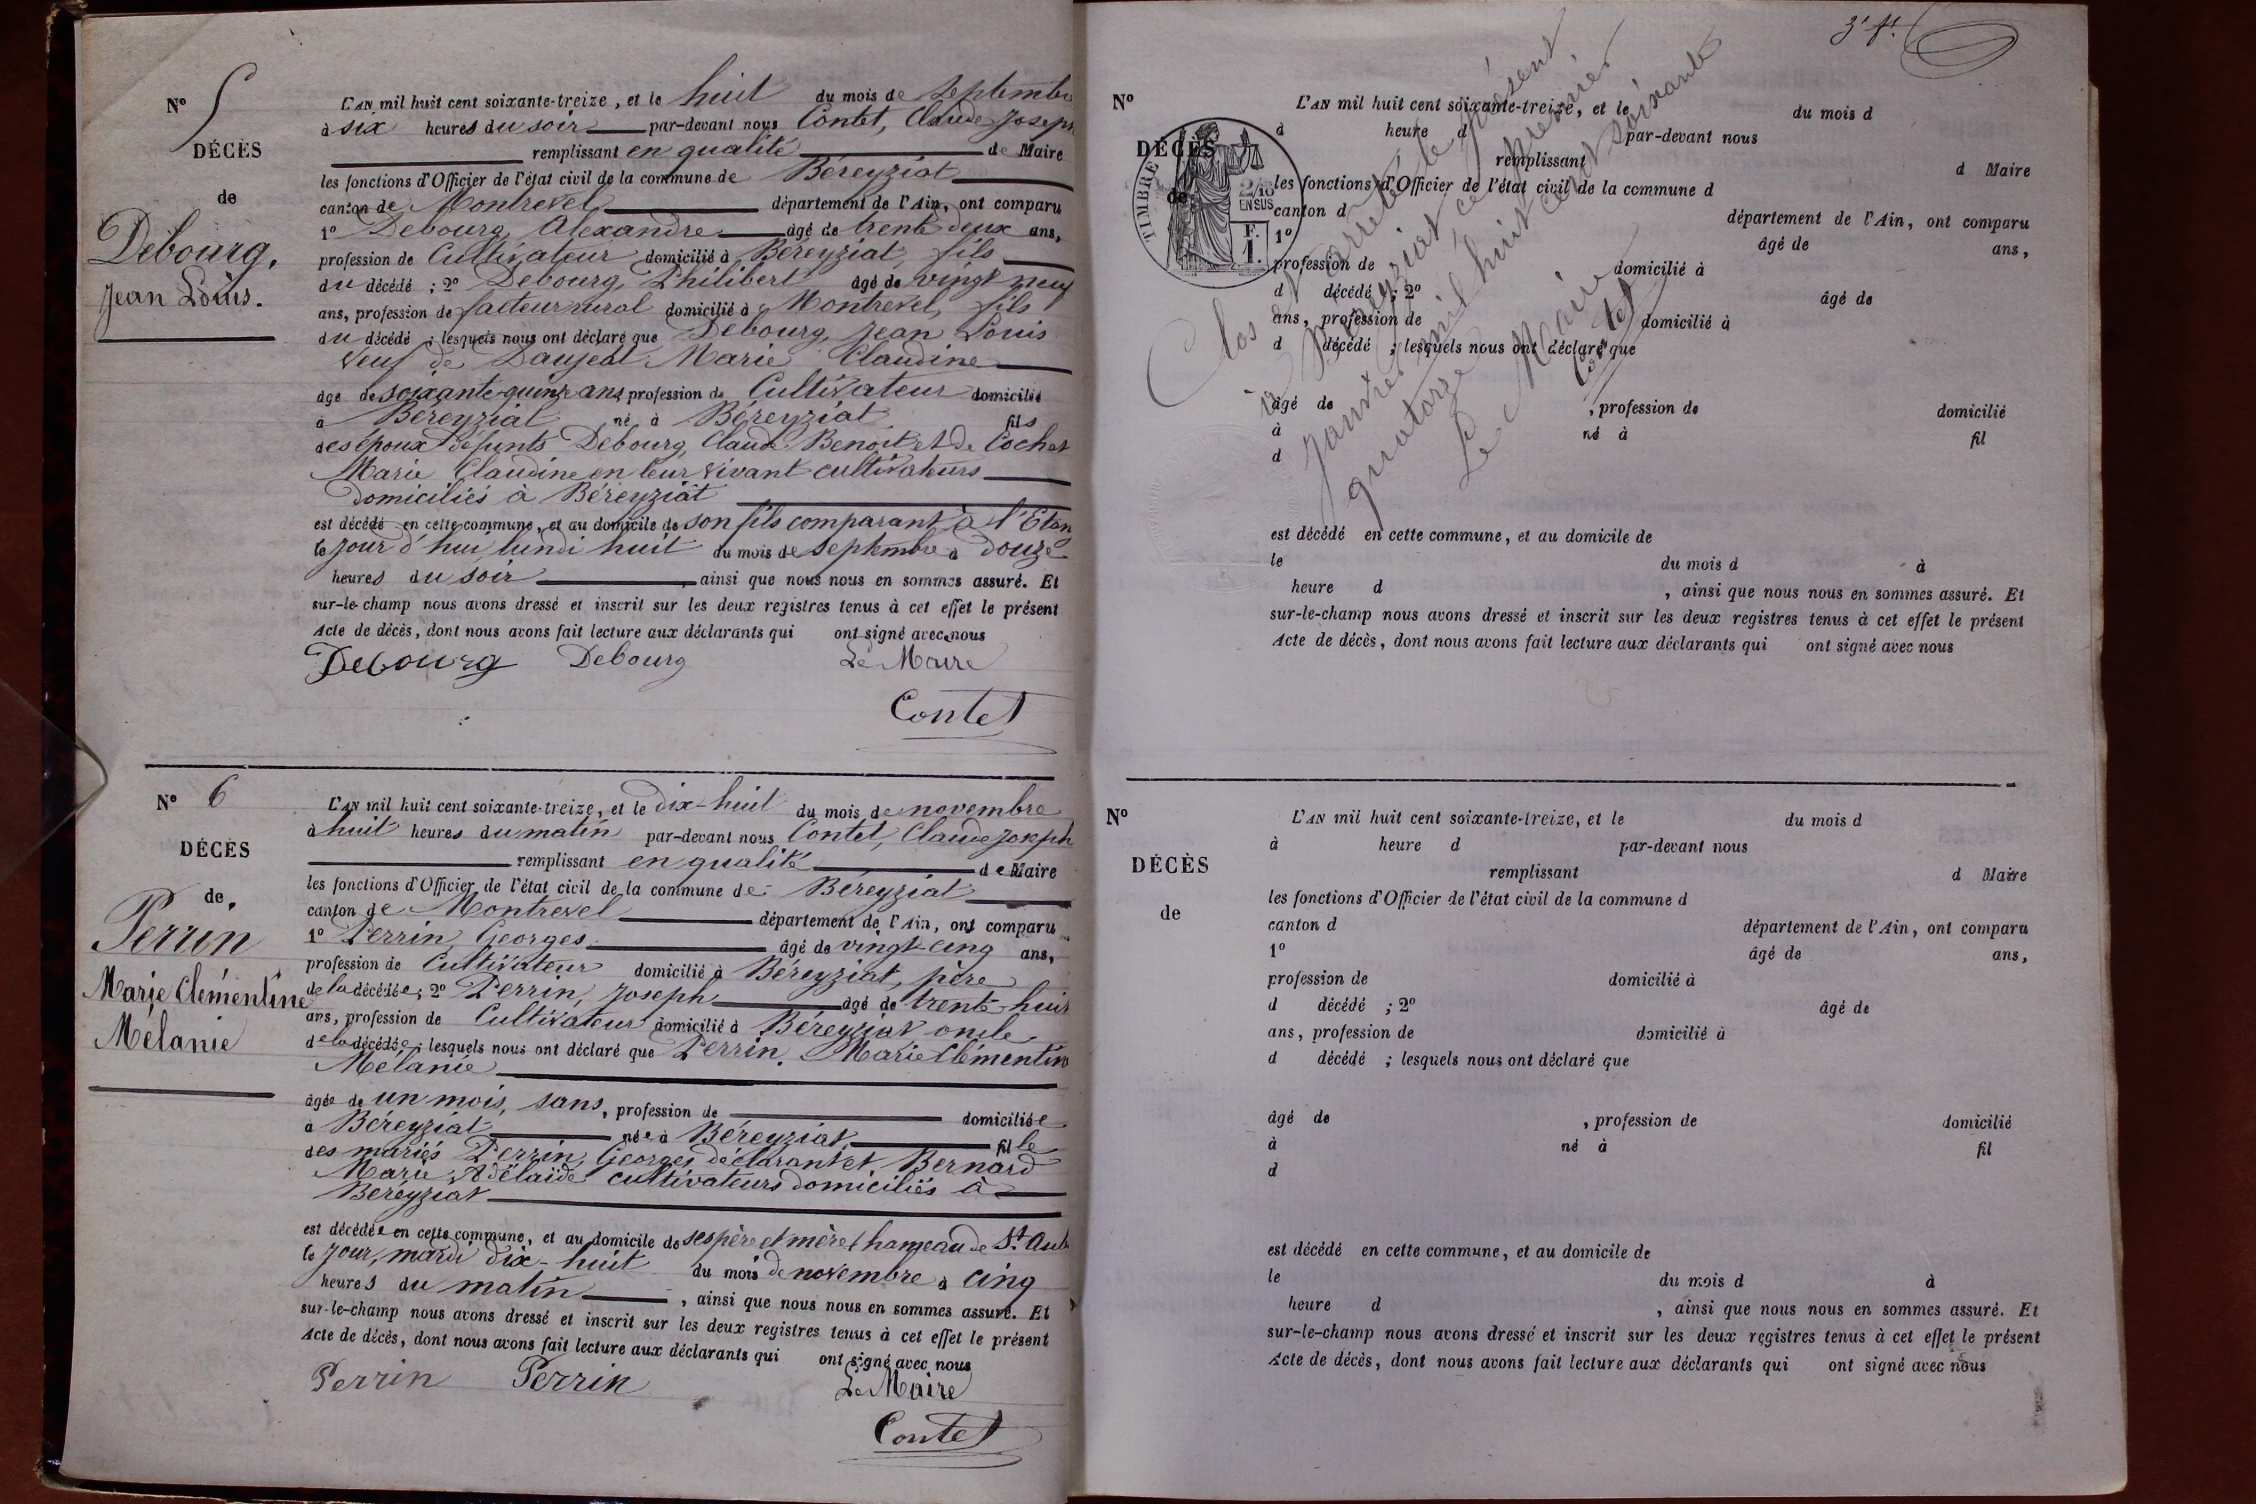 N° 5
DÉCÈS
de
Debourg,
Jean Louis.
L'AN mil huit cent soixante-treize, et le huit du mois de septembre
à six heures du soir par-devant nous Contet, Claude Joseph
remplissant en qualité de Maire
les fonctions d'Officier de l'état civil de la commune de Béreyziat
canton de Montrevel département de l'Ain, ont comparu
1° Debourg Alexandre âgé de trente deux ans,
profession de Cultivateur domicilié à Béreyziat, fils
du décédé ; 2° Debourg Philibert âgé de vingt neuf
ans, profession de facteur rural domicilié à Montrevel, fils
du décédé ; lesquels nous ont déclaré que Debourg, Jean Louis
veuf de Daujeat Marie Claudine
âgé de soixante-quinze ans, profession de Cultivateur domicilié
à Béreyziat né à Béreyziat fils
des époux défunts Debourg, Claude Benoit et de Cochet
Marie Claudine en leur vivant cultivateurs
domiciliés à Béreyziat
est décédé en cette commune, et au domicile de son fils comparant à l'Etang
le jour d'hui lundi huit du mois de septembre à douze
heures du soir, ainsi que nous nous en sommes assuré. Et
sur-le-champ nous avons dressé et inscrit sur les deux registres tenus à cet effet le présent
Acte de décès, dont nous avons fait lecture aux déclarants qui ont signé avec nous
Debourg Debourg Le Maire
Contet
N° 6
DÉCÈS
de
Perrin
Marie Clémentine
Mélanie
L'AN mil huit cent soixante-treize, et le dix-huit du mois de novembre
à huit heures du matin par-devant nous Contet, Claude Joseph
remplissant en qualité de Maire
les fonctions d'Officier de l'état civil de la commune de Béreyziat
canton de Montrevel département de l'Ain, ont comparu
1° Perrin Georges âgé de vingt-cinq ans,
profession de Cultivateur domicilié à Béreyziat, père
de la décédée ; 2° Perrin, Joseph âgé de trente-huit
ans, profession de Cultivateur domicilié à Béreyziat oncle
de la décédée ; lesquels nous ont déclaré que Perrin, Marie Clémentine
Mélanie
âgée de un mois, sans, profession de domiciliée
à Béreyziat née à Béreyziat, fille
des mariés Perrin, Georges déclarant et Bernard
Marie Adélaïde cultivateurs domiciliés à
Béreyziat
est décédée en cette commune, et au domicile de ses père et mère hameau de St. Aub
le jour, mardi dix-huit du mois de novembre à cinq
heures du matin, ainsi que nous nous en sommes assuré. Et
sur-le-champ nous avons dressé et inscrit sur les deux registres tenus à cet effet le présent
Acte de décès, dont nous avons fait lecture aux déclarants qui ont signé avec nous
Perrin Perrin Le Maire
Contet
3e ft.
N°
DÉCÈS
de
TIMBRE
2/10
EN SUS
F.
1.
L'AN mil huit cent soixante-treize, et le du mois d
à heure d par-devant nous
remplissant d Maire
les fonctions d'Officier de l'état civil de la commune d
canton d département de l'Ain, ont comparu
1° âgé de ans,
profession de domicilié à
d décédé ; 2° âgé de
ans, profession de domicilié à
d décédé ; lesquels nous ont déclaré que
âgé de , profession de domicilié
à né à fil
d
est décédé en cette commune, et au domicile de
le du mois d à
heure d , ainsi que nous nous en sommes assuré. Et
sur-le-champ nous avons dressé et inscrit sur les deux registres tenus à cet effet le présent
Acte de décès, dont nous avons fait lecture aux déclarants qui ont signé avec nous
Clos et arrêté le présent
à Béreyziat ce premier
Janvier mil huit cent soixante
quatorze
Le Maire
Contet
N°
DÉCÈS
de
L'AN mil huit cent soixante-treize, et le du mois d
à heure d par-devant nous
remplissant d Maire
les fonctions d'Officier de l'état civil de la commune d
canton d département de l'Ain, ont comparu
1° âgé de ans,
profession de domicilié à
d décédé ; 2° âgé de
ans, profession de domicilié à
d décédé ; lesquels nous ont déclaré que
âgé de , profession de domicilié
à né à fil
d
est décédé en cette commune, et au domicile de
le du mois d à
heure d , ainsi que nous nous en sommes assuré. Et
sur-le-champ nous avons dressé et inscrit sur les deux registres tenus à cet effet le présent
Acte de décès, dont nous avons fait lecture aux déclarants qui ont signé avec nous